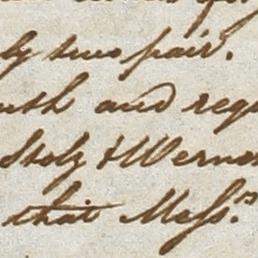 ly two pair.
and requ
Stolz & Werner
that Mess.rs